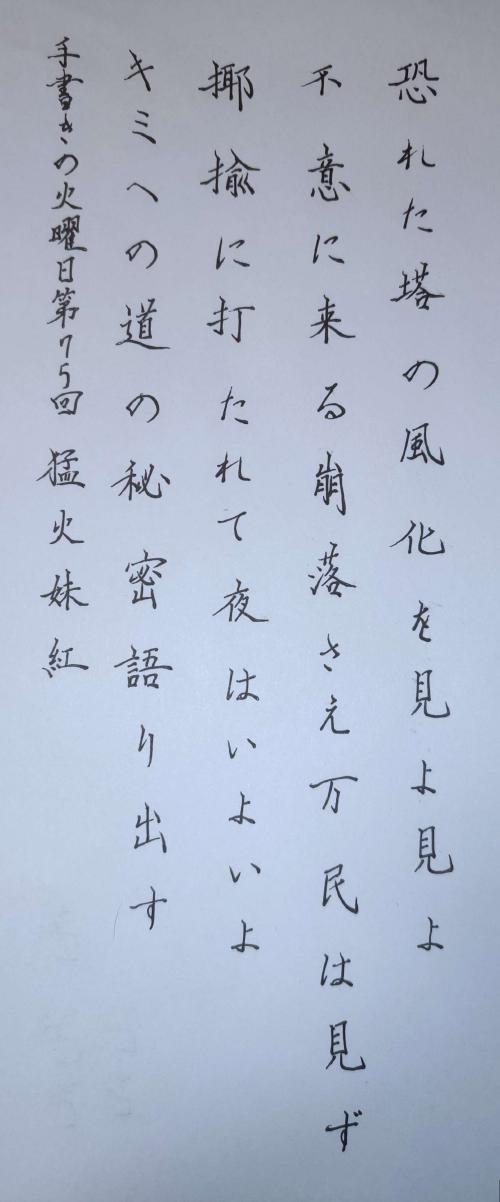 恐れた塔の風化を見よ見よ
不意に来る崩落さえ万民は見ず
揶揄に打たれて夜はいよいよ
キミへの道の秘密語り出す
手書きの火曜日第75回 猛火妹紅